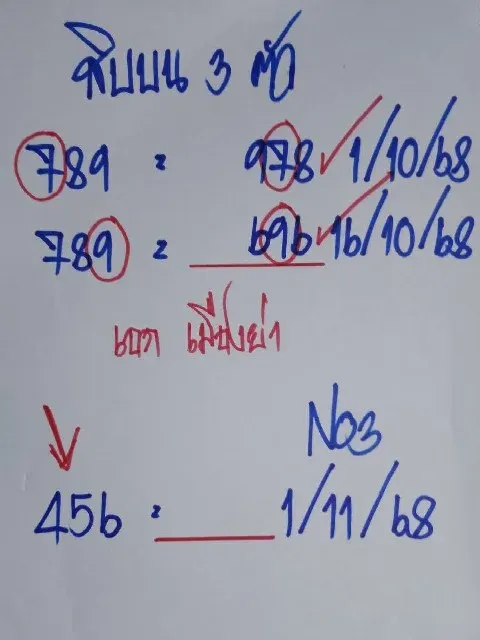 สิบบน 3 ตัว
789 = 978 ✓ 1/10/68
789 = 696 ✓ 16/10/68
เอก เมืองย่า
No3
456 = ____ 1/11/68